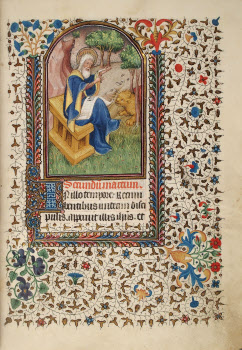 Secundum marcum.
In illo tempore: Recum
bentibus undecim disci
pulis. aparuit illis ihus. et